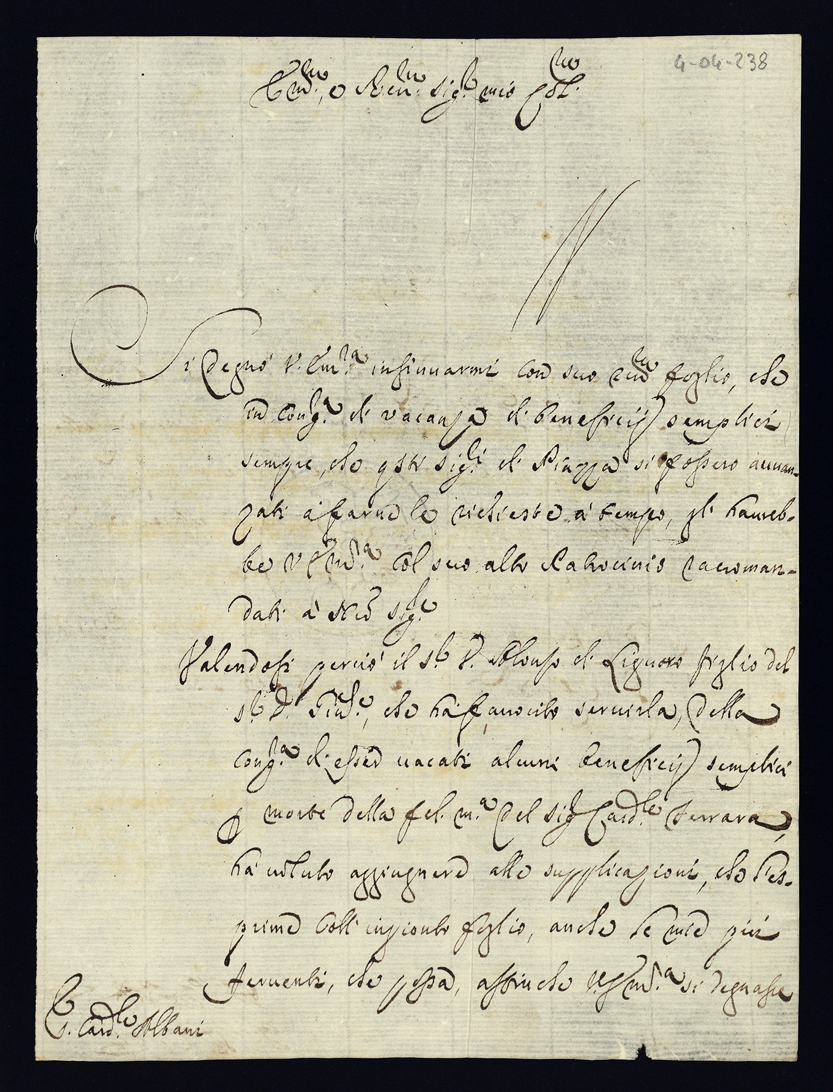 4-04-238
Em.mo, e Rev.mo Sig.r mio Col.mo
Si degnò V. Em.za insinuarmi con suo riv.mo foglio, che
in cong.a di vacanza di beneficij semplici
sempre, che q.sti Sig.ri di Piazza si fossero avvan-
zati à farne le richieste à tempo, gli haureb-
be V. Em.za col suo alto Patrocinio raccoman-
dati à N.ro Sig.re
Valendosi perciò il S.r D. Alonso di Liguoro figlio del
S.r D. che hà favorito servirla, della
cong.a di esser vacati alcuni beneficij semplici
p morte della fel. m.a del Sig.r Card.le Ferrara,
hà voluto aggiugnere alle supplicazioni, che l'es-
prime coll'ingionto foglio, anche le mie più
ferventi, che possa, affinche V. Em.za si degnasse
S. Card.le Albani